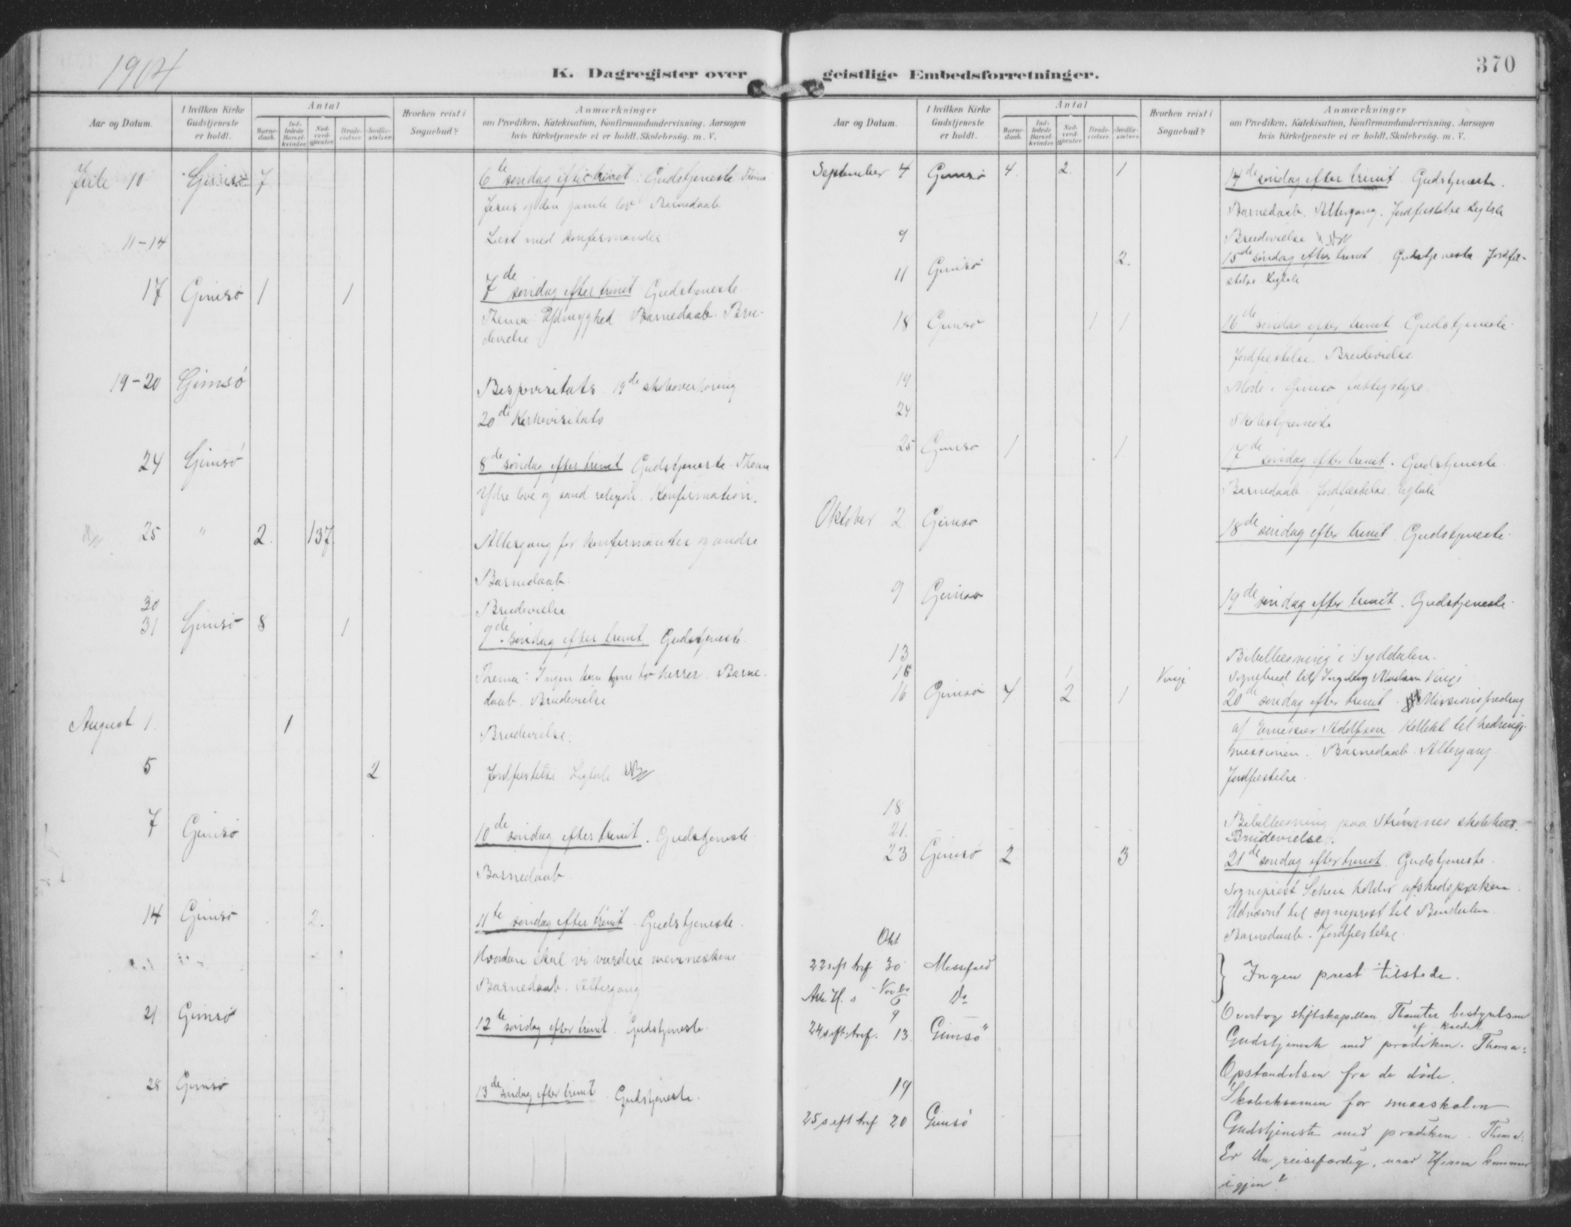 1904
K. Dagregister over geistlige Embedsforretninger.
370
Aar og Datum.
I hvilken Kirke Gudstjeneste er holdt.
Antal
Barnedaab.
Indledede Barselkvinder
Nadverdgjester
Brudevielser
Jordfæstelser
Hvorhen reist i Sognebud?
Anmærkninger
om Prædiken, Katekisation, Konfirmandundervisning, Aarsagen
hvis Kirketjeneste ei er holdt, Skolebesøg. m. V.
Juli 10 Gimsø 7 6te søndag efter trinit. Gudstjeneste. Thema
Jesus og den gamle lov. Barnedaab
11-14 Læst med konfirmander
17 Gimsø 1 1 7de søndag efter trinit Gudstjeneste
Thema Ydmyghed Barnedaab. Bru-
devielse
19-20 Gimsø Bispevisitats. 19de
20de Kirkevisitats
24 Gimsø 8de søndag efter trinit Gudstjeneste. Thema
Ydre love og sand religion. Konfirmation.
25 " 2. 137 Altergang for konfirmanter og andre
Barnedaab.
30 Brudevielse
31 Gimsø 8 1 9de søndag efter trinit Gudstjeneste.
Thema: Ingen kan tjene to herrer. Barne-
daab. Brudevielse
August 1. 1 Brudevielse.
5 2 Jordfæstelse Ligtale NB
7 Gimsø 10de søndag efter trinit. Gudstjeneste
Barnedaab
14 Gimsø 2. 11te søndag efter trinit. Gudstjeneste.
Hvordan skal vi vurdere mennesken
Barnedaab. Altergang
21 Gimsø 12te søndag efter trinit. Gudstjeneste.
28 Gimsø 13de søndag efter trinit. Gudstjeneste.
Aar og Datum.
I hvilken Kirke Gudstjeneste er holdt.
Antal
Barnedaab.
Indledede Barselkvinder
Nadverdgjester
Brudevielser
Jordfæstelser
Hvorhen reist i Sognebud?
Anmærkninger
om Prædiken, Katekisation, Konfirmandundervisning, Aarsagen
hvis Kirketjeneste ei er holdt, Skolebesøg. m. V.
September 4 Gimsø 4. 2. 1 14de søndag efter trinit. Gudstjeneste.
Barnedaab. Altergang. Jordfæstelse Ligtale
9 Brudevielse
11 Gimsø 2. 15de søndag efter trinit Gudstjeneste Jordfæ-
stelse Ligtale
18 Gimsø 1 1 16de søndag efter trinit Gudstjeneste.
Jordfæstelse. Brudevielse
19 Møde i Gimsø
24 Skolestyremøte
25 Gimsø 1 1 17de søndag efter trinit. Gudstjeneste
Barnedaab. Jordfæstelse. Ligtale
Oktober 2 Gimsø 18de søndag efter trinit. Gudstjeneste.
9 Gimsø 19de søndag efter trinit. Gudstjeneste.
13 Bibellæsning i Syddalen.
15 Sognebud til
16 Gimsø 4 2 1 20de søndag efter trinit. Missionsforedrag
af Emissær Adolfsen Kollekt til hednings-
missionen. Barnedaab. Altergang.
Jordfæstelse.
18 Bibellæsning paa skolehus.
21. Brudevielse.
23 Gimsø 2 3 21de søndag efter trinit. Gudstjeneste.
Sogneprest holder afskedspræken.
Udnævnt til sogneprest til
Barnedaab. Jordfæstelse.
Okt
22 s eft tref 30 Messefald
Alle H. s Novbr 6 Do
} Ingen prest tilstede.
9 Overtog stiftskapellan bestyrelsen af kaldet
24 s eft. tref. 13. Gimsø Gudstjeneste med prædiken. Thema:
Opstandelsen fra de døde.
19 Skoleeksamen for smaaskolen
25 s eft tref 20 Gimsø Gudstjeneste med prædiken. Thema:
Er du reisefærdig, naar Herren kommer
igjen?